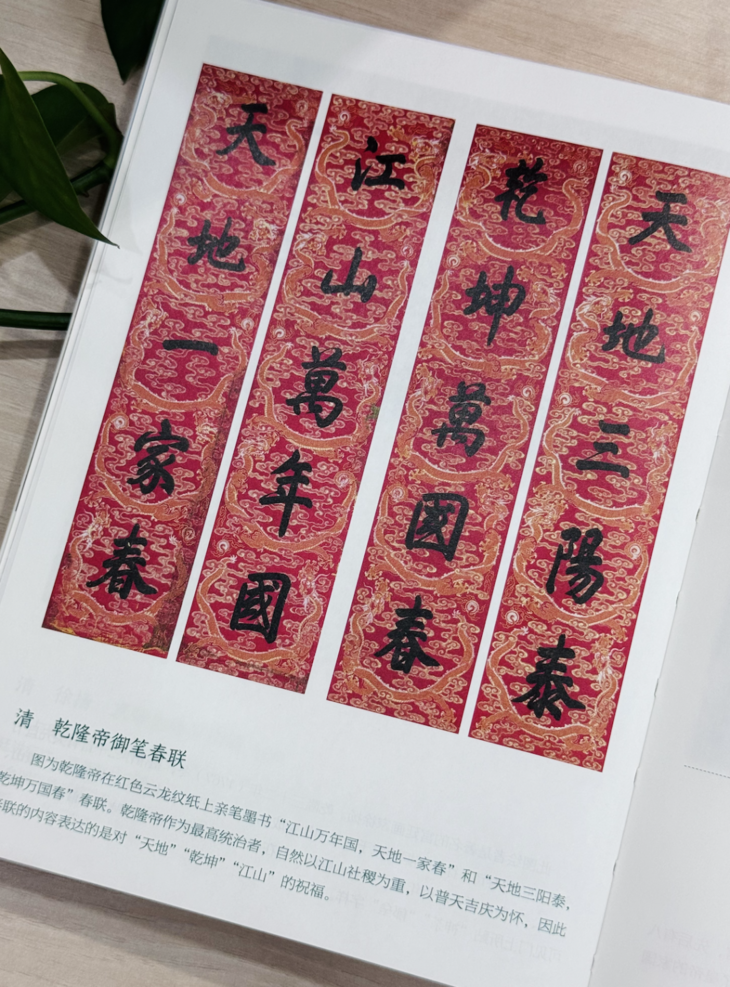 天地三陽泰
乾坤萬國春
江山萬年國
天地一家春
清 乾隆帝御笔春联
图为乾隆帝在红色云龙纹纸上亲笔墨书“江山万年国，天地一家春”和“天地三阳泰，
乾坤万国春”春联。乾隆帝作为最高统治者，自然以江山社稷为重，以普天吉庆为怀，因此
联的内容表达的是对“天地”“乾坤”“江山”的祝福。